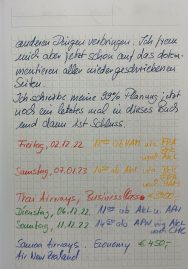 anderen Dingen verbringen. Ich freue
mich aber jetzt schon auf das doku-
mentieren aller niedergeschriebenen
Seiten.
Ich schreibe meine 99% Planung jetzt
noch ein letztes mal in dieses Buch
und dann ist Schluss.
Freitag, 02.12.22 ab HAM via FRA
und
Samstag, 07.01.23 ab AKL via
und
Thai Airways, Business Class
Dienstag, 06.12.22 ab AKL u. APW
Sonntag, 11.12.22 ab APW via AKL
und CHC
Samoa Airways Economy € 450,-
Air New Zealand